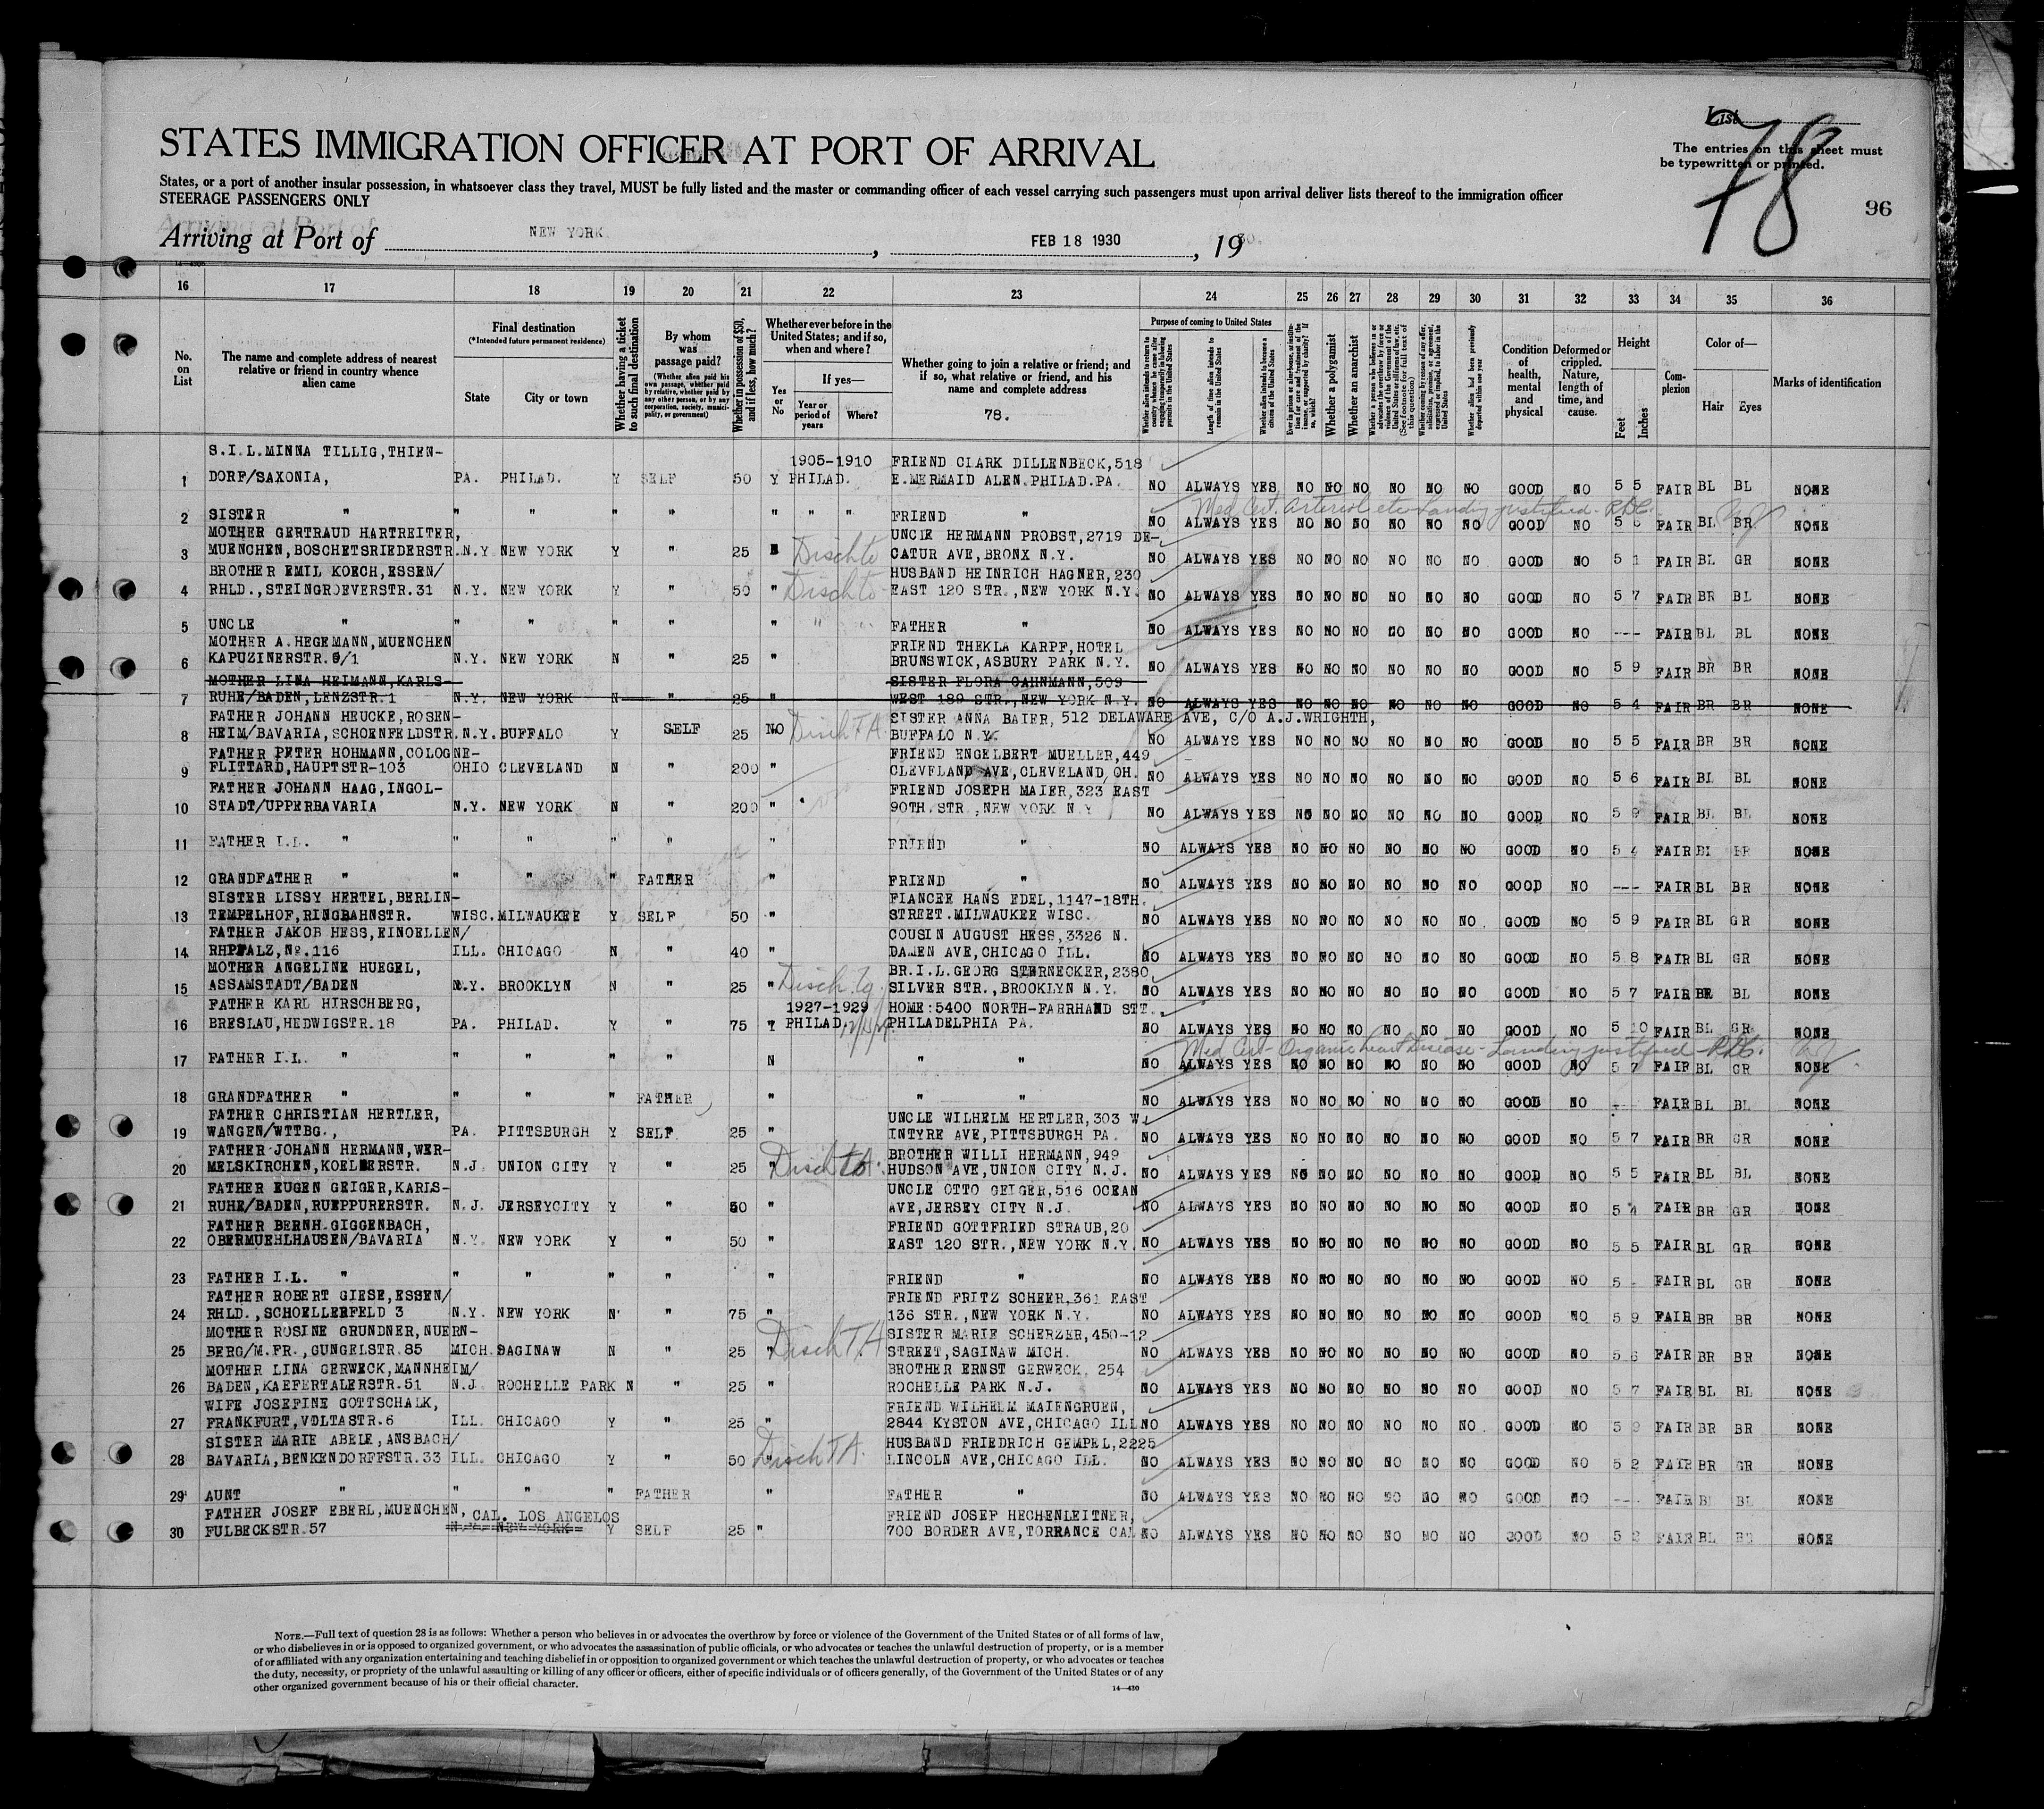 List
STATES IMMIGRATION OFFICER AT PORT OF ARRIVAL
78
The entries on this sheet must
be typewritten or printed.
States, or a port of another insular possession, in whatsoever class they travel, MUST be fully listed and the master or commanding officer of each vessel carrying such passengers must upon arrival deliver lists thereof to the immigration officer
STEERAGE PASSENGERS ONLY
96
Arriving at Port of NEW YORK, FEB 18 1930, 19 30.
16 17 18 19 20 21 22 23 24 25 26 27 28 29 30 31 32 33 34 35 36
No. on List
The name and complete address of nearest relative or friend in country whence alien came
Final destination
(*Intended future permanent residence)
State
City or town
Whether having a ticket to such final destination
By whom was passage paid?
(Whether alien paid his own passage, whether paid by relative, whether paid by any other person, or by any corporation, society, municipality, or government)
Whether in possession of $50, and if less, how much?
Whether ever before in the United States; and if so, when and where?
Yes or No
If yes—
Year or period of years
Where?
Whether going to join a relative or friend; and if so, what relative or friend, and his name and complete address
78.
Purpose of coming to United States
Whether alien intends to return to country whence he came after engaging temporarily in laboring pursuits in the United States
Length of time alien intends to remain in the United States
Whether alien intends to become a citizen of the United States
Whether a polygamist
Whether an anarchist
Condition of health, mental and physical
Deformed or crippled. Nature, length of time, and cause.
Height
Feet
Inches
Complexion
Color of—
Hair
Eyes
Marks of identification
S.I.L.MINNA TILLIG,THIEN- 1905-1910 FRIEND CLARK DILLENBECK,518
1 DORF/SAXONIA, PA. PHILAD. Y SELF 50 Y PHILAD. E.MERMAID ALEN.PHILAD.PA. NO ALWAYS YES NO NO NO NO NO NO GOOD NO 5 5 FAIR BL BL NONE
Med Cert. Arteriol etc Landing justified
2 SISTER " " " " " " " " " FRIEND " NO ALWAYS YES NO NO NO NO NO NO GOOD NO 5 6 FAIR BL BR NONE
MOTHER GERTRAUD HARTREITER, UNCLE HERMANN PROBST,2719 DE-
3 MUENCHEN,BOSCHETSRIEDERSTR. N.Y. NEW YORK Y " 25 CATUR AVE,BRONX N.Y. NO ALWAYS YES NO NO NO NO NO NO GOOD NO 5 1 FAIR BL GR NONE
BROTHER EMIL KOECH,ESSEN/ HUSBAND HEINRICH HAGNER,230
4 RHLD.,STEINGROEVERSTR.31 N.Y. NEW YORK Y " 50 " EAST 120 STR.,NEW YORK N.Y. NO ALWAYS YES NO NO NO NO NO NO GOOD NO 5 7 FAIR BR BL NONE
5 UNCLE " " " " " " FATHER " NO ALWAYS YES NO NO NO NO NO NO GOOD NO --- FAIR BL BL NONE
MOTHER A.HEGEMANN,MUENCHEN FRIEND THEKLA KARPF,HOTEL
6 KAPUZINERSTR.9/1 N.Y. NEW YORK N " 25 " BRUNSWICK,ASBURY PARK N.Y. NO ALWAYS YES NO NO NO NO NO NO GOOD NO 5 9 FAIR BR BR NONE
MOTHER LINA HEIMANN,KARLS- SISTER FLORA CAHNMANN,509
7 RUHE/BADEN,LENZSTR.1 N.Y. NEW YORK N " 25 " WEST 189 STR.,NEW YORK N.Y. NO ALWAYS YES NO NO NO NO NO NO GOOD NO 5 4 FAIR BR BR NONE
FATHER JOHANN HEUCKE,ROSEN- SISTER ANNA BAIER, 512 DELAWARE AVE, C/O A.J.WRIGHTH,
8 HEIM/BAVARIA,SCHOENFELDSTR. N.Y. BUFFALO Y SELF 25 NO Disch TA BUFFALO N.Y. NO ALWAYS YES NO NO NO NO NO NO GOOD NO 5 5 FAIR BR BR NONE
FATHER PETER HOHMANN,COLOGNE- FRIEND ENGELBERT MUELLER,449
9 FLITTARD,HAUPTSTR-103 OHIO CLEVELAND N " 200 " CLEVELAND AVE,CLEVELAND,OH. NO ALWAYS YES NO NO NO NO NO NO GOOD NO 5 6 FAIR BL BL NONE
FATHER JOHANN HAAG,INGOL- FRIEND JOSEPH MAIER,323 EAST
10 STADT/UPPERBAVARIA N.Y. NEW YORK N " 200 " 90TH.STR.,NEW YORK N.Y NO ALWAYS YES NO NO NO NO NO NO GOOD NO 5 9 FAIR BL BL NONE
11 FATHER I.L. " " " " " " FRIEND " NO ALWAYS YES NO NO NO NO NO NO GOOD NO 5 4 FAIR BL BR NONE
12 GRANDFATHER " " " " FATHER " FRIEND " NO ALWAYS YES NO NO NO NO NO NO GOOD NO --- FAIR BL BR NONE
SISTER LISSY HERTEL,BERLIN- FIANCEE HANS EDEL,1147-18TH.
13 TEMPELHOF,RINGBAHNSTR. WISC. MILWAUKEE Y SELF 50 " STREET.MILWAUKEE WISC. NO ALWAYS YES NO NO NO NO NO NO GOOD NO 5 9 FAIR BL GR NONE
FATHER JAKOB HESS,EINOELLEN/ COUSIN AUGUST HESS,3326 N.
14 RHPFALZ,No.116 ILL. CHICAGO N " 40 " DAMEN AVE,CHICAGO ILL. NO ALWAYS YES NO NO NO NO NO NO GOOD NO 5 8 FAIR BL GR NONE
MOTHER ANGELINE HUEGEL, BR.I.L.GEORG STERNECKER,2380
15 ASSAMSTADT/BADEN N.Y. BROOKLYN N " 25 " SILVER STR.,BROOKLYN N.Y. NO ALWAYS YES NO NO NO NO NO NO GOOD NO 5 7 FAIR BR BL NONE
FATHER KARL HIRSCHBERG, 1927-1929 HOME:5400 NORTH-FARRHAND STT.,
16 BRESLAU,HEDWIGSTR.18 PA. PHILAD. Y " 75 Y PHILAD. PHILADELPHIA PA. NO ALWAYS YES NO NO NO NO NO NO GOOD NO 5 10 FAIR BL GR NONE
Med Cert - Organic heart disease - Landing justified
17 FATHER I.L. " " " " " N " " NO ALWAYS YES NO NO NO NO NO NO GOOD NO 5 7 FAIR BL GR NONE
18 GRANDFATHER " " " " FATHER " " " NO ALWAYS YES NO NO NO NO NO NO GOOD NO --- FAIR BL BL NONE
FATHER CHRISTIAN HERTLER, UNCLE WILHELM HERTLER,303 W.
19 WANGEN/WTTBG., PA. PITTSBURGH Y SELF 25 " INTYRE AVE,PITTSBURGH PA. NO ALWAYS YES NO NO NO NO NO NO GOOD NO 5 7 FAIR BR GR NONE
FATHER JOHANN HERMANN,WER- BROTHER WILLI HERMANN,949
20 MELSKIRCHEN,KOELNERSTR. N.J. UNION CITY Y " 25 " HUDSON AVE,UNION CITY N.J. NO ALWAYS YES NO NO NO NO NO NO GOOD NO 5 5 FAIR BL BL NONE
FATHER EUGEN GEIGER,KARLS- UNCLE OTTO GEIGER,516 OCEAN
21 RUHE/BADEN,RUEPPURERSTR. N.J. JERSEYCITY Y " 50 " AVE,JERSEY CITY N.J. NO ALWAYS YES NO NO NO NO NO NO GOOD NO 5 4 FAIR BR GR NONE
FATHER BERNH.GIGGENBACH, FRIEND GOTTFRIED STRAUB,20
22 OBERMUEHLHAUSEN/BAVARIA N.Y. NEW YORK Y " 50 " EAST 120 STR.,NEW YORK N.Y. NO ALWAYS YES NO NO NO NO NO NO GOOD NO 5 5 FAIR BL GR NONE
23 FATHER I.L. " " " " " " FRIEND " NO ALWAYS YES NO NO NO NO NO NO GOOD NO 5 - FAIR BL GR NONE
FATHER ROBERT GIESE,ESSEN/ FRIEND FRITZ SCHEER,361 EAST
24 RHLD.,SCHOELLERFELD 3 N.Y. NEW YORK N " 75 " 136 STR.,NEW YORK N.Y. NO ALWAYS YES NO NO NO NO NO NO GOOD NO 5 9 FAIR BR BR NONE
MOTHER ROSINE GRUNDNER,NUERN- SISTER MARIE SCHERZER,450-12
25 BERG/M.FR.,GUNGELSTR.85 MICH. SAGINAW N " 25 " Disch TA STREET,SAGINAW MICH. NO ALWAYS YES NO NO NO NO NO NO GOOD NO 5 6 FAIR BR BR NONE
MOTHER LINA GERWECK,MANNHEIM/ BROTHER ERNST GERWECK, 254
26 BADEN,KAEFERTALERSTR.51 N.J. ROCHELLE PARK N " 25 " ROCHELLE PARK N.J. NO ALWAYS YES NO NO NO NO NO NO GOOD NO 5 7 FAIR BL BL NONE
WIFE JOSEFINE GOTTSCHALK, FRIEND WILHELM MAIENGRUEN,
27 FRANKFURT,VOLTASTR.6 ILL. CHICAGO Y " 25 " 2844 KYSTON AVE,CHICAGO ILL NO ALWAYS YES NO NO NO NO NO NO GOOD NO 5 9 FAIR BR BR NONE
SISTER MARIE ABELE,ANSBACH/ HUSBAND FRIEDRICH GEMPEL,2225
28 BAVARIA,BENKENDORFFSTR.33 ILL. CHICAGO Y " 50 " Disch TA. LINCOLN AVE,CHICAGO ILL. NO ALWAYS YES NO NO NO NO NO NO GOOD NO 5 2 FAIR BR GR NONE
29 AUNT " " " " FATHER " FATHER " NO ALWAYS YES NO NO NO NO NO NO GOOD NO --- FAIR BL BL NONE
FATHER JOSEF EBERL,MUENCHEN, CAL. LOS ANGELOS FRIEND JOSEF HECHENLEITNER,
30 FULBECKSTR.57 N.Y. NEW YORK Y SELF 25 " 700 BORDER AVE,TORRANCE CAL NO ALWAYS YES NO NO NO NO NO NO GOOD NO 5 2 FAIR BL BR NONE
NOTE.—Full text of question 28 is as follows: Whether a person who believes in or advocates the overthrow by force or violence of the Government of the United States or of all forms of law,
or who disbelieves in or is opposed to organized government, or who advocates the assassination of public officials, or who advocates or teaches the unlawful destruction of property, or is a member
of or affiliated with any organization entertaining and teaching disbelief in or opposition to organized government or which teaches the unlawful destruction of property, or who advocates or teaches
the duty, necessity, or propriety of the unlawful assaulting or killing of any officer or officers, either of specific individuals or of officers generally, of the Government of the United States or of any
other organized government because of his or their official character.
14—430